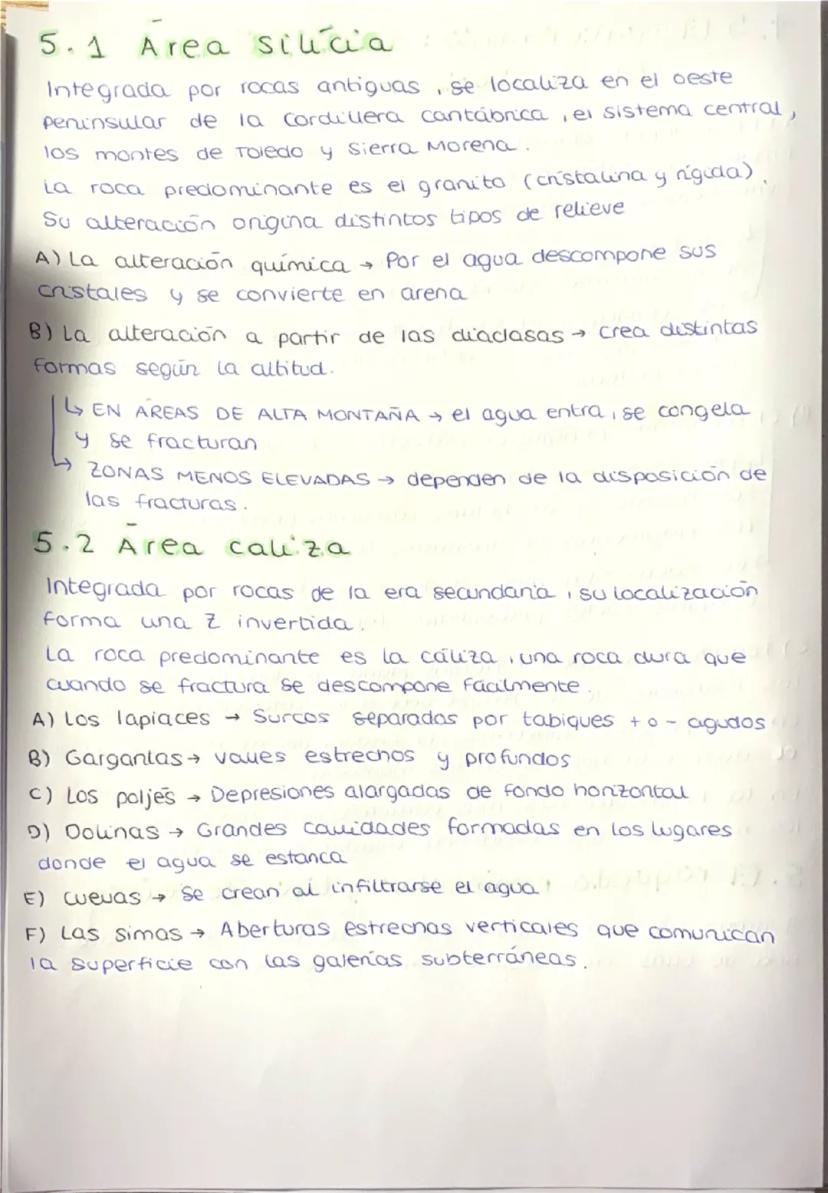 5.1 Área silícia
Integrada por rocas antiguas, se localiza en el oeste
peninsular de la cordillera cantábrica, el sistema central,
los montes de Toledo y Sierra Morena.
La roca predominante es el granito (cristalina y rígida).
Su alteración origina distintos tipos de relieve
A) La alteración química → Por el agua descompone sus
cristales y se convierte en arena
B) La alteración a partir de las diaclasas → crea distintas
formas según la altitud.
↳ EN ÁREAS DE ALTA MONTAÑA → el agua entra, se congela
y se fracturan
↳ ZONAS MENOS ELEVADAS → dependen de la disposición de
las fracturas.
5.2 Área caliza
Integrada por rocas de la era secundaria, su localización
forma una Z invertida.
La roca predominante es la cáliza, una roca dura que
cuando se fractura se descompone fácilmente.
A) Los lapiaces → Surcos separados por tabiques + o - agudos
B) Gargantas → valles estrechos y profundos
C) Los poljés → Depresiones alargadas de fondo horizontal
D) Dolinas → Grandes cavidades formadas en los lugares
donde el agua se estanca
E) Cuevas → Se crean al infiltrarse el agua
F) Las simas → Aberturas estrechas verticales que comunican
la superficie con las galerías subterráneas.